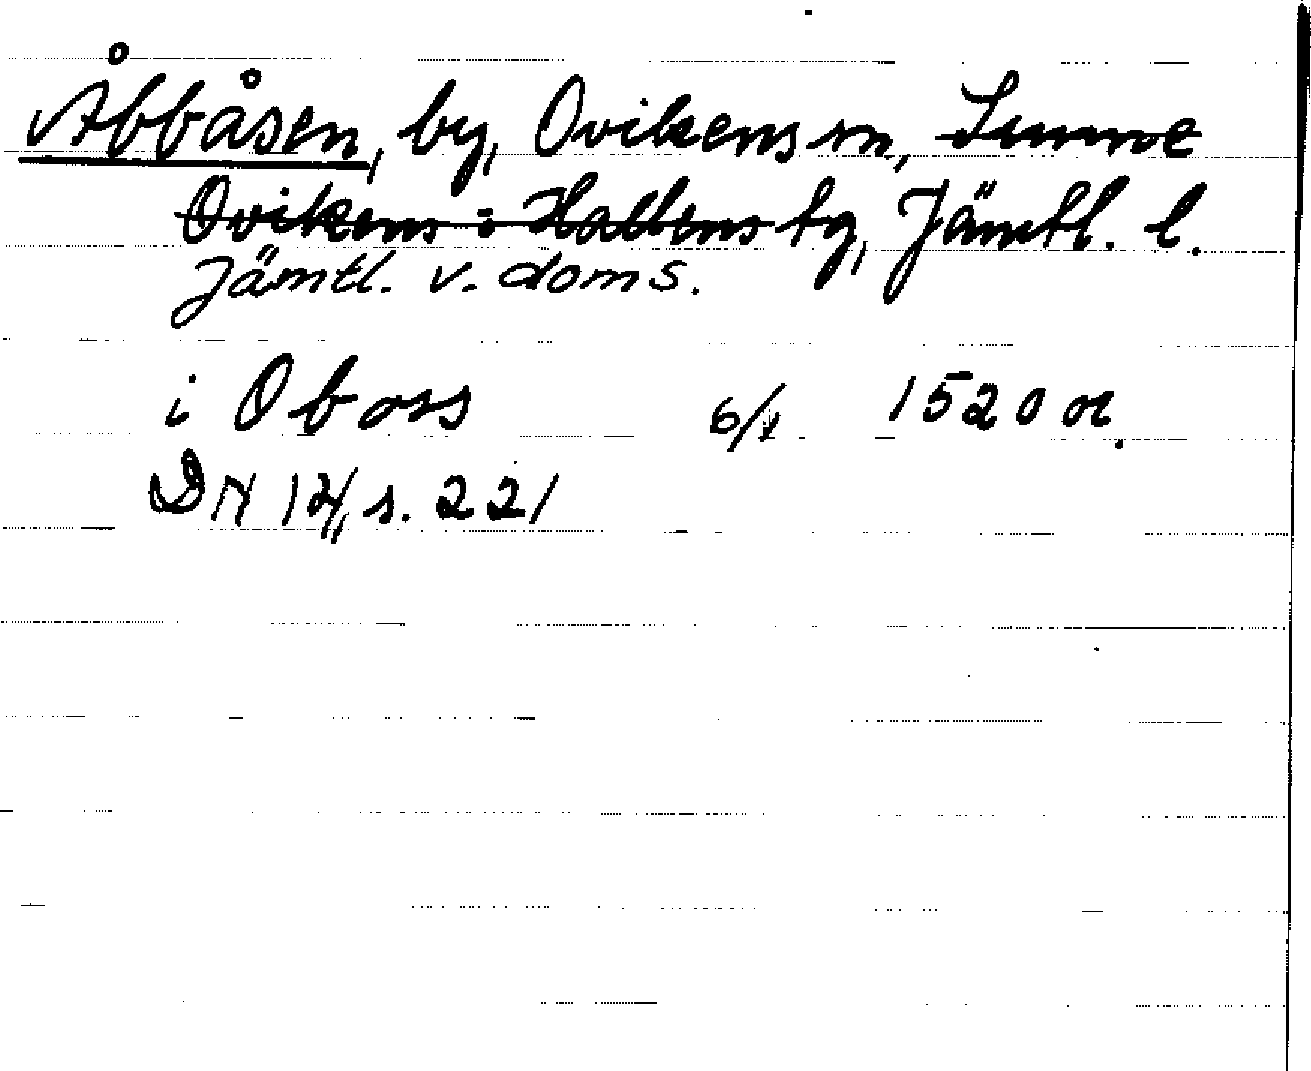 Åbbåsen, by, Ovikens sn, Sunne
Ovikens o Hallens tg, Jämtl. l.
Jämtl. v. doms.
i Oboss 6/1 1520 or.
DN 14, s. 221